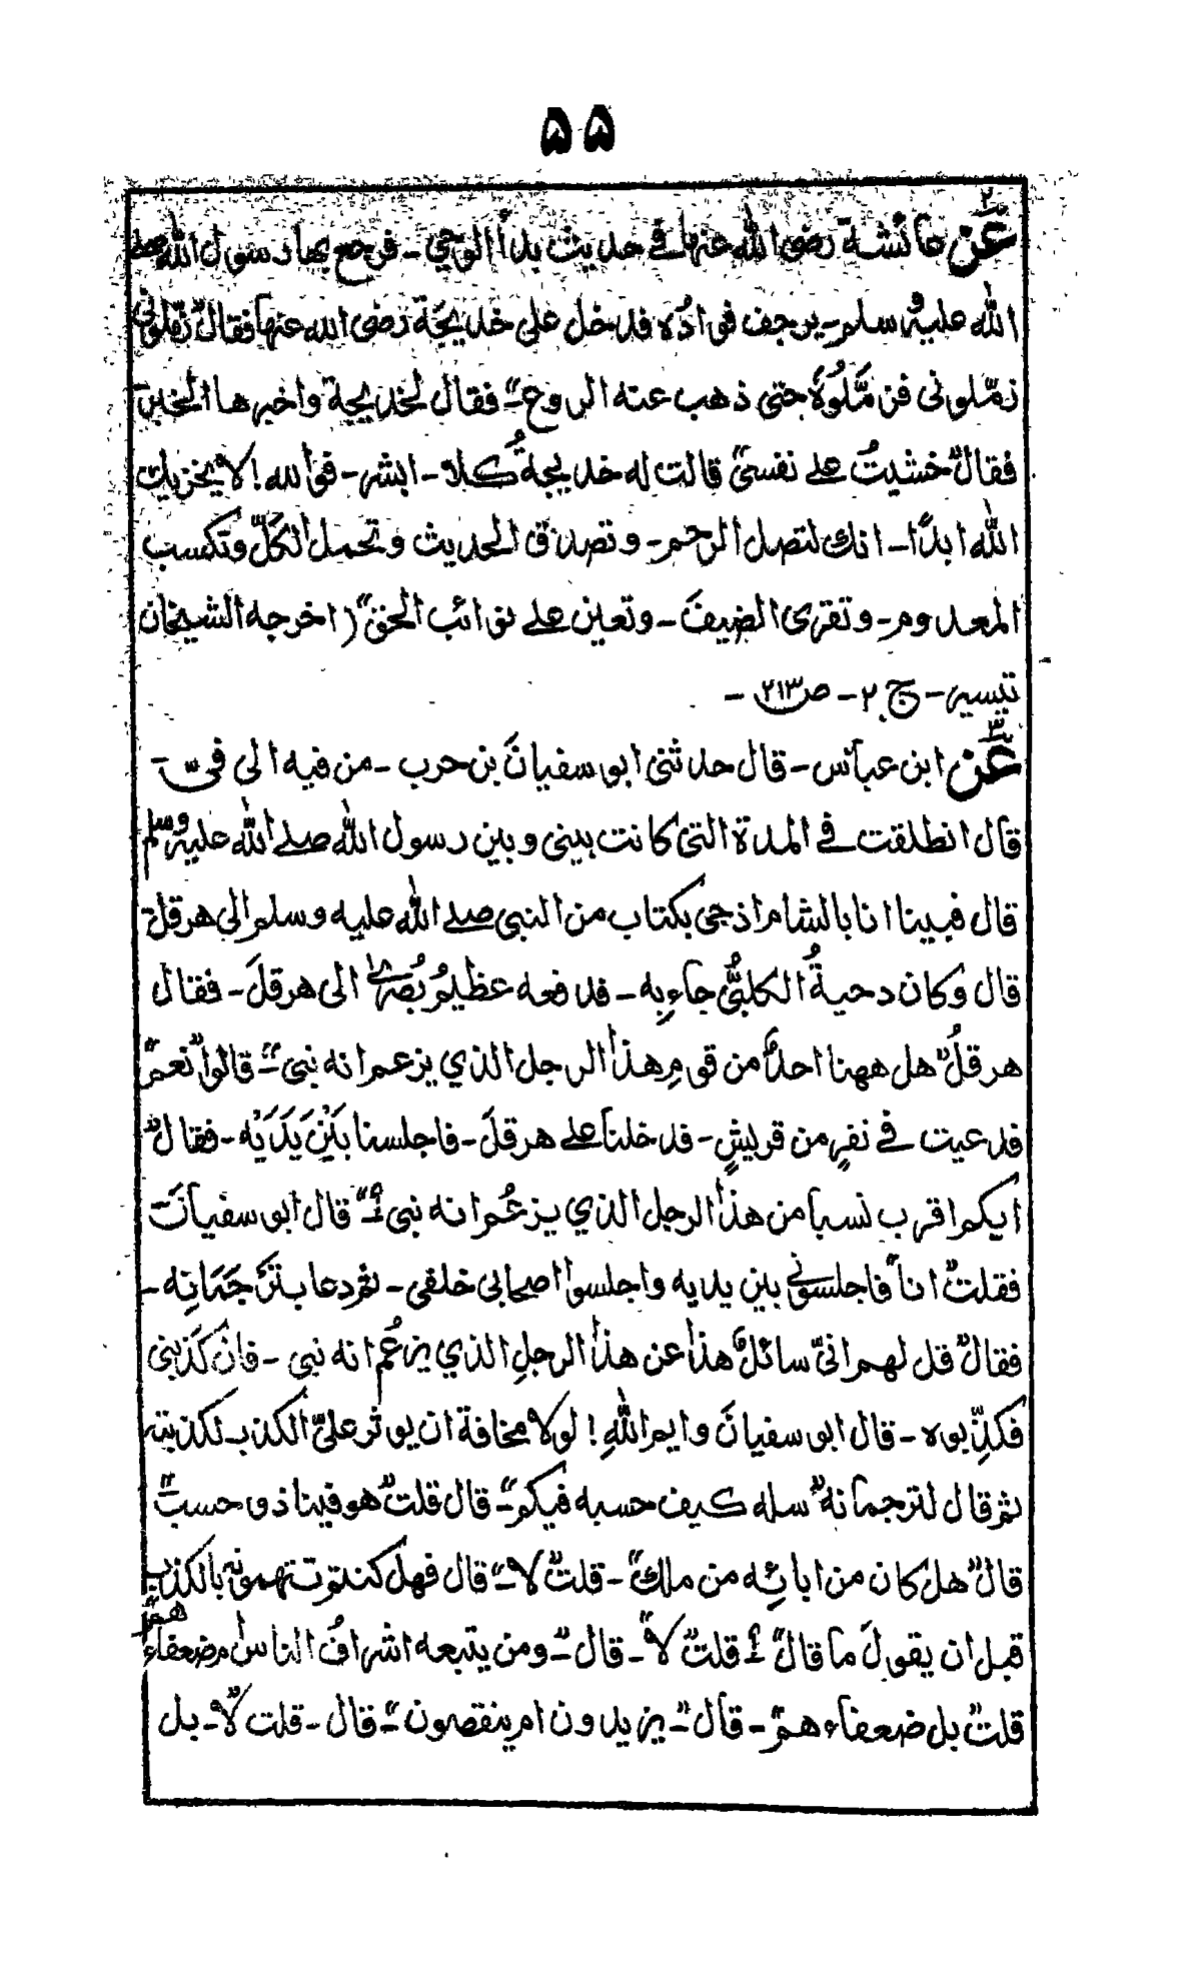 ۵۵
عَنْ عائشة رضی الله عنها فی حدیث بدأ الوحی ـ فرجع بها رسول الله صلے
الله علیه وسلم ـ یرجف فوادُه فدخل علی خدیجَة رضی الله عنها فقال "زمّلونی
زمّلونی فزمَّلُوهُ حتی ذهب عنه الروع" ـ فقال لخدیجة واخبرها الخبر
فقال "خشیتُ علے نفسی" قالت له خدیجةُ کلا ـ ابشر ـ فوالله! لا یخزیك
الله ابدًا ـ انك لتصل الرحم ـ وتصدق الحدیث وتحمل الکَلَّ وتکسب
المعدوم ـ وتقری الضیفَ ـ وتعین علے نوائب الحق" (اخرجه الشیخان
تیسیر ـ ج ۲ ـ ص ۲۱۳ ـ
۳
عَنْ ابن عباس ـ قال حدثنی ابو سفیانَ بن حرب ـ من فیه الی فیّ ـ
قال انطلقت فی المدة التی کانت بینی وبین رسول الله صلے الله علیه وسلم
قال فبینا انا بالشام اذ جئ بکتاب من النبی صلے الله علیه وسلم الی هرقل
قال وکان دحیةُ الکلبیُّ جاء به ـ فدفعه عظیمُ بُصریٰ الی هرقلَ ـ فقال
هرقلُ "هل ههنا احدٌ من قومِ هذا الرجل الذی یزعم انه نبی" ـ قالوا "نعم"
فدعیت فی نفرٍ من قریشٍ ـ فدخلنا علے هرقلَ ـ فاجلسنا بَیْنَ یَدَیْه ـ فقال "
ایکم اقرب نسبا من هذا الرجل الذی یزعُم انه نبی؟" قال ابو سفیانَ
فقلت "انا" فاجلسونی بین یدیه واجلسوا اصحابی خلفی ـ ثم دعا بتَرجَمَانِه ـ
فقال "قل لهم انیّ سائلٌ هذا عن هذا الرجلِ الذی یزعُم انه نبی ـ فان کَذَبنی
فکذِّبوه ـ قال ابو سفیانَ وایم اللهِ! لولا مخافة ان یوثر علیّ الکذب لکذبته
ثم قال لترجمانه "سله کیف حسبه فیکم" ـ قال قلت "هو فینا ذو حسب"
قال "هل کان من ابائِه من ملك" ـ قلت "لا" ـ قال فهل کنتم تتهمونه بالکذب
قبل ان یقولَ ما قال؟" قلت "لا" ـ قال "ـ ومن یتبعه اشرافُ الناس ام ضعفاءهم
قلت "بل ضعفاءهم" ـ قال "ـ یزیدون ام ینقصون" ـ قال ـ قلت "لا ـ بل